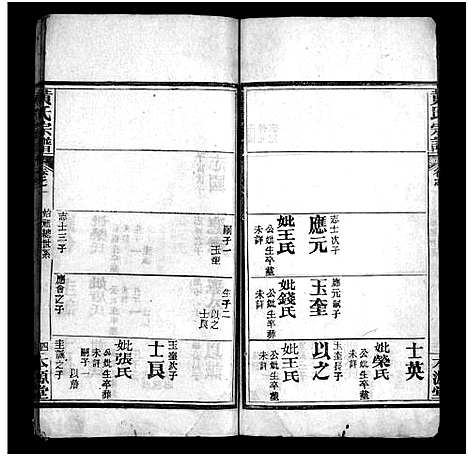 黃氏宗譜
志士次子
應元
妣王氏
公妣生卒葬
未詳
嗣子一
玉奎
應元嗣子
玉奎
妣錢氏
公妣生卒葬
未詳
生子二
以之
士良
玉奎長子
以之
妣王氏
公妣生卒葬
未詳
士英
妣榮氏
公妣生卒葬
未詳
玉奎次子
士良
妣張氏
公妣生卒葬
未詳
嗣子一
以詹
黃氏宗譜
始祖總世系
志士三子
應會之子
四
本源堂